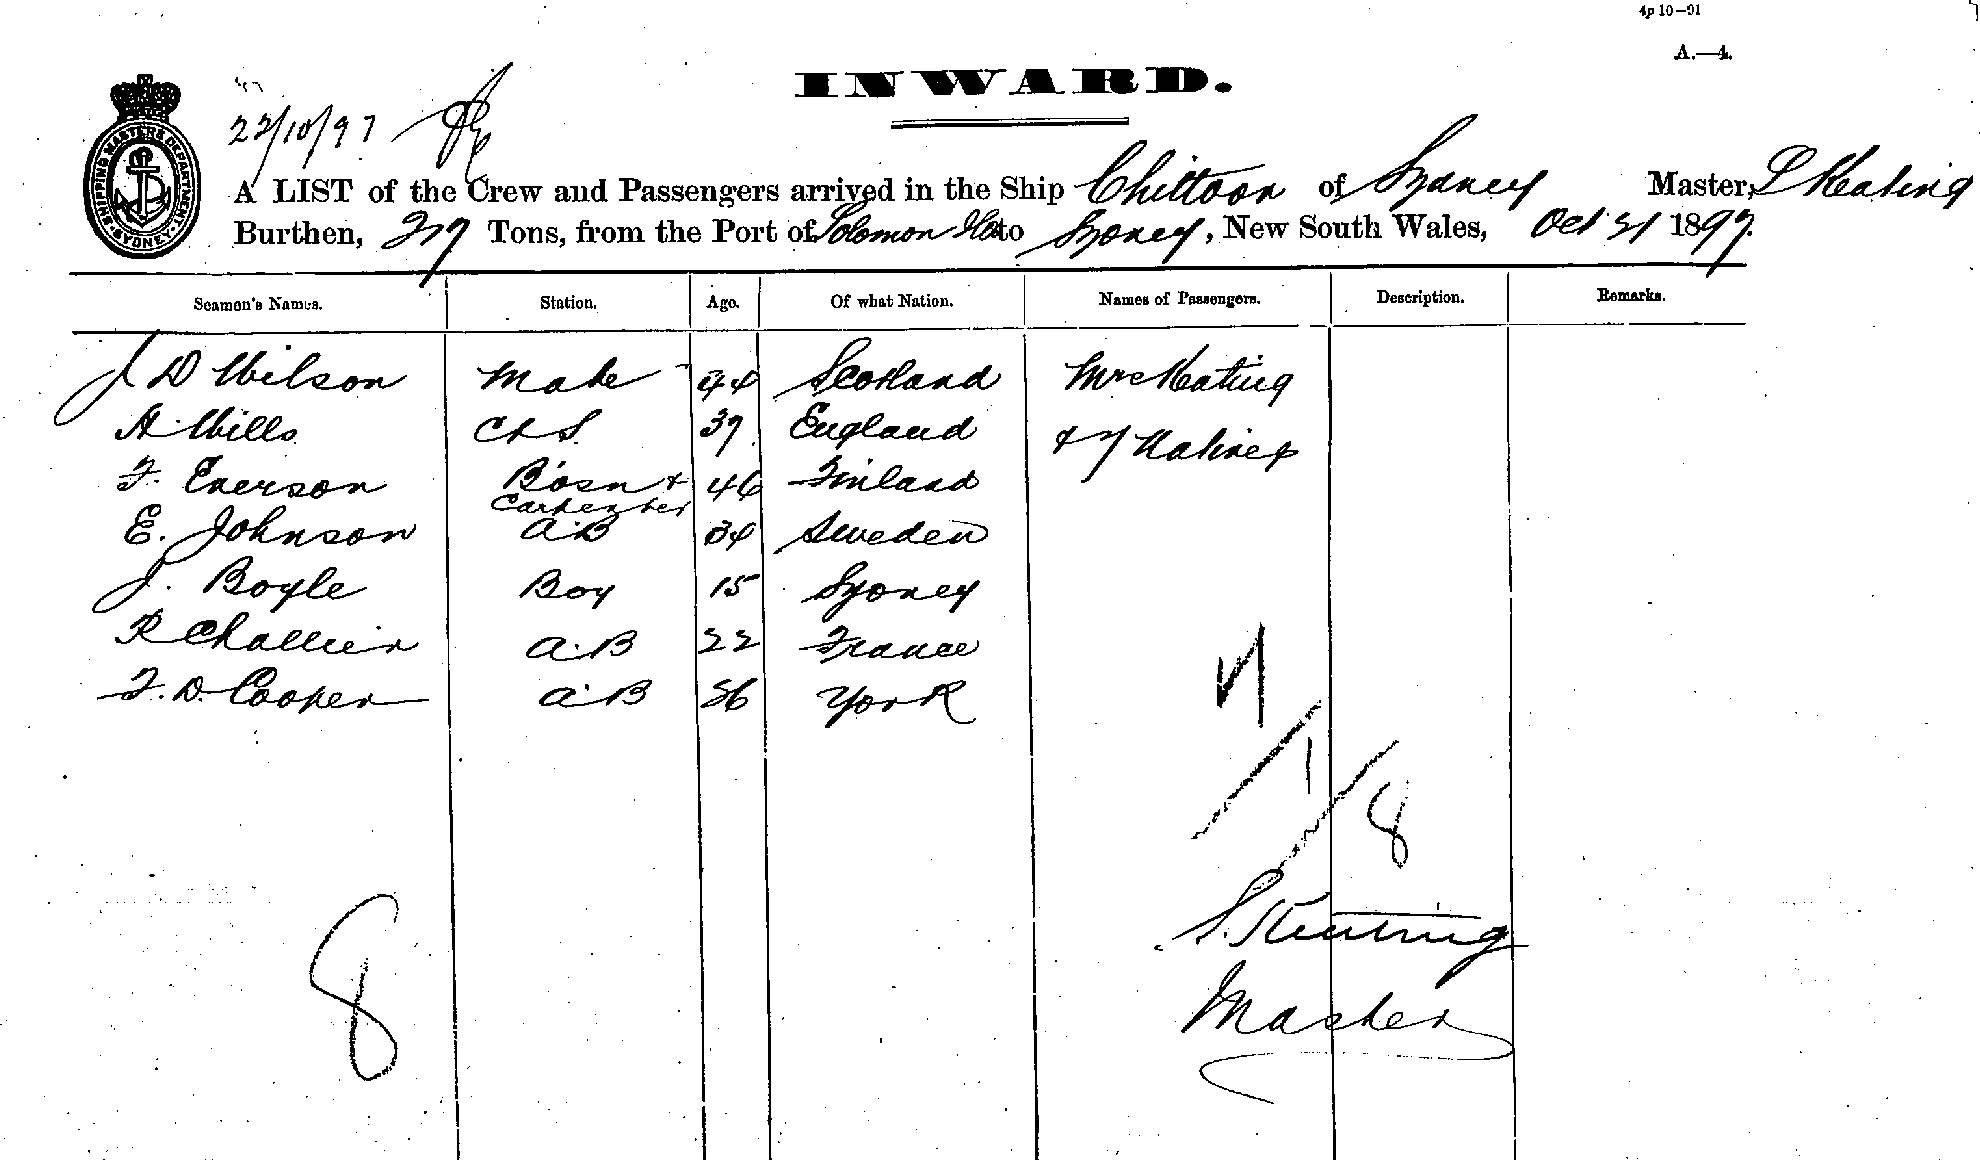 4p 10—91
A.—4.
INWARD.
22/10/97
SHIPPING MASTERS DEPARTMENT SYDNEY
A LIST of the Crew and Passengers arrived in the Ship Chittoor of Sydney Master, S Keating
Burthen, Tons, from the Port of Solomon Is to Sydney, New South Wales, Oct 21 1897.
Seamen's Names. Station. Age. Of what Nation. Names of Passengers. Description. Remarks.
J D Wilson Mate 44 Scotland Mrs Keating
A. Wills C & S. 37 England & 7 Natives
F. Enerson Bosn & Carpenter 46 Finland
E. Johnson A.B 34 Sweden
J. Boyle Boy 15 Sydney
R Challier A.B 22 France
F. D. Cooper A.B 36 York
7
/ 1
/ 8
8
S. Keating
Master